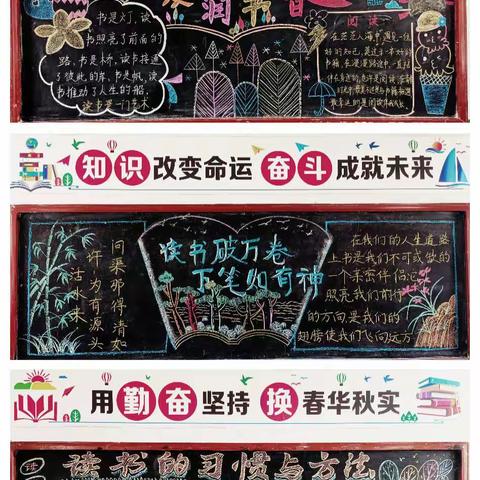 润书香
书是灯,读
书照亮了前面的
路,书是桥,读书接通
了彼此的岸,书是帆,读
书推动了人生的船,
读书是一门艺术
阅读
在茫茫人海中遇见一位
知识改变命运 奋斗成就未来
问渠那得清如
许,为有源头
活水来
读书破万卷
下笔如有神
在我们的人生道路
上书是我们不可或缺的
一个亲密伴侣
照亮我们前行
的方向是我们的
翅膀使我们飞向远方
用勤奋坚持 换春华秋实
读书的习惯与方法